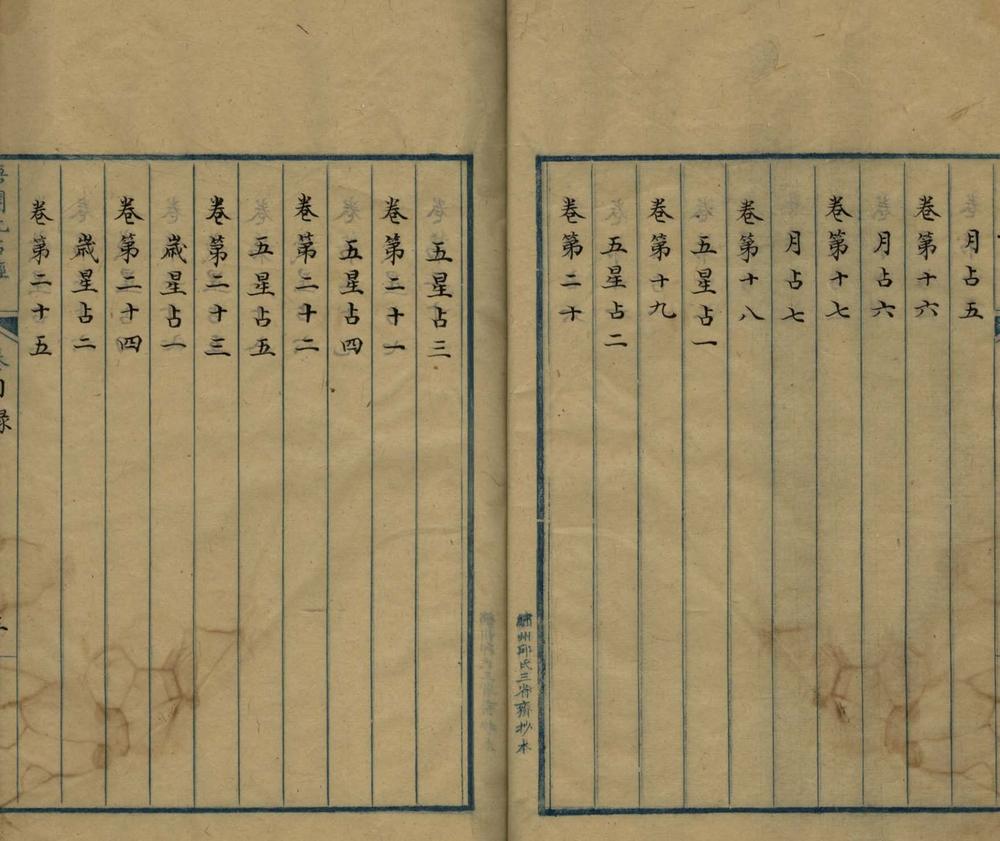 月占五
卷第十六
月占六
卷第十七
月占七
卷第十八
五星占一
卷第十九
五星占二
卷第二十
州邱氏三省齋抄本
五星占三
卷第二十一
五星占四
卷第二十二
五星占五
卷第二十三
歲星占一
卷第二十四
歲星占二
卷第二十五
目録